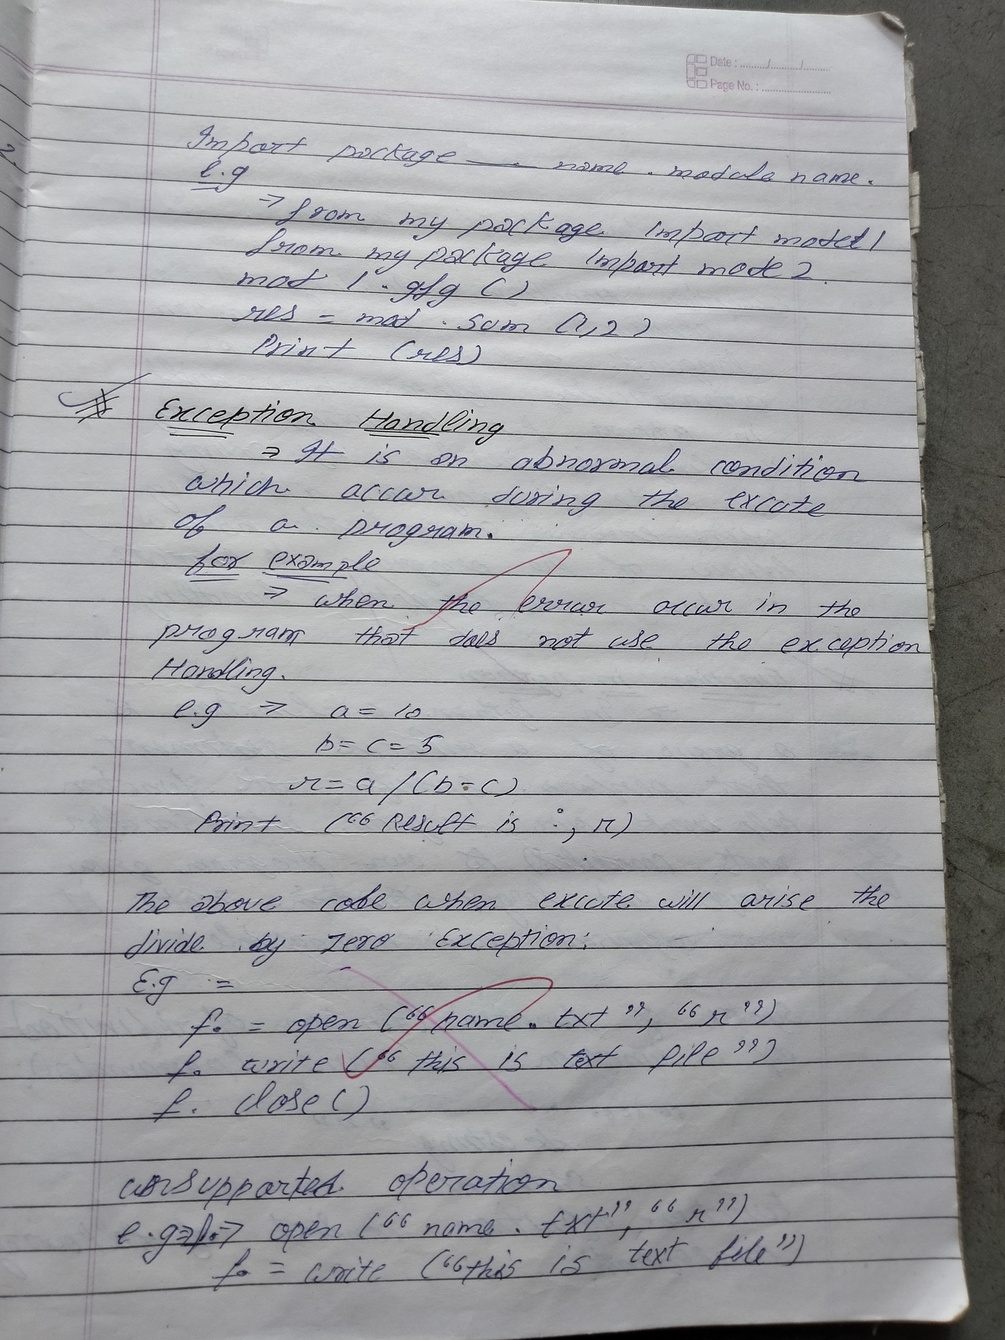 Date : ......../......../........
Page No. : ........................
2
Import package — name . modula name.
e.g
→ from my package import model 1
from my package import mode 2.
mod 1 . gfg ()
res = mod . sum (1,2)
Print (res)
Exception Handling
→ It is an abnormal condition
which accur during the excute
of a program.
for example
→ when the error occur in the
program that does not use the exception
Handling.
e.g → a = 10
b = c = 5
r = a / (b - c)
Print (“ Result is :, r)
The above code when excute will arise the
divide by zero Exception:
E.g =
f. = open (“name. txt”, “r”)
f. write (“ this is text file”)
f. close ()
unsupported operation
e.g → open (“ name . txt”, “r”)
f. = write (“this is text file”)